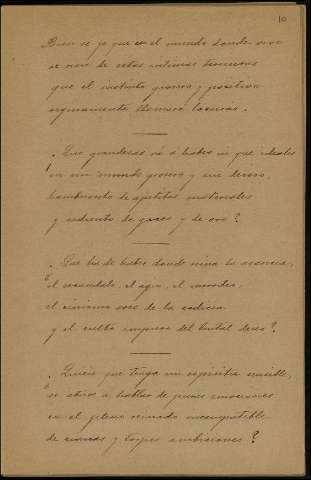 10
Bien sé yo que en el mundo donde vivo
se rien de estas intimas ternuras
que el instinto grosero y positivo
seguramente llamará locuras.
¿Que grandezas vá á haber ni que ideales
en un mundo grosero y sin decoro,
hambriento de apetitos materiales
y sediento de goces y de oro?
¿Qué ha de haber donde reina la
el escandalo, el agio, el
el cinismo soez de la
y el culto impuro del brutal deseo?
¿Quién que tenga un espiritu sensible,
se atreve á hablar de puras emociones
en el pleno reinado incorregible
de cinicas y torpes ambiciones?